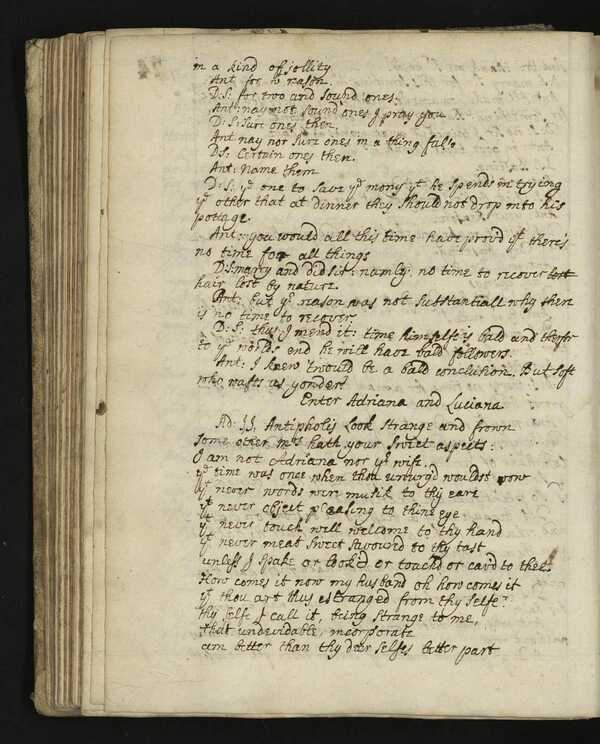 in a kind of jollity
Ant. for wt reason.
D:S: for two and sound ones.
Ant: nay not sound ones I pray you
D: S: sure ones then.
Ant nay nor sure ones in a thing false
DS: Certain ones then.
Ant: Name them
D: S: ye one to save ye mony yt he spends in trying
ye other that at dinner they should not drop into his
pottage.
Ant: you would all this time have prov'd if there's
no time for all things
D:S: marry and did sir: namly no time to recover
hair lost by nature.
Ant: But ye reason was not substantiall why there
is no time to recover
D: S: thus I mend it: time himselfe is bald and therfor
to ye worlds end he will have bald followers.
Ant: I knew 'twould be a bald conclusion. But soft
who wafts us yonder?
Enter Adriana and Luciana
AD: I, I, Antipholis Look strange and frown
some other mrs hath your sweet aspects:
I am not Adriana nor ye wife.
ye time was once when thou unurg'd wouldst vow
yt never words were musik to thy eare
yt never object pleasing to thine eye
yt never touch well wellcome to thy hand
yt never meat sweet savourd to thy tast
unless I spake or look'd or touchd or carvd to thee.
How comes it now my husband oh how comes it
yt thou art thus estranged from thy selfe?
thy selfe I call it, being strange to me,
that undevidable, incorporate
am better than thy dear selfes better part